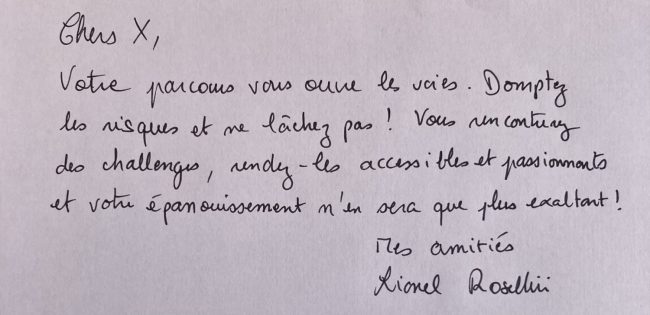 Chers X,
Votre parcours vous ouvre les voies. Domptez
les risques et ne lâchez pas ! Vous rencontrerez
des challenges, rendez-les accessibles et passionnants
et votre épanouissement n'en sera que plus exaltant !
Mes amitiés
Lionel Rosellini